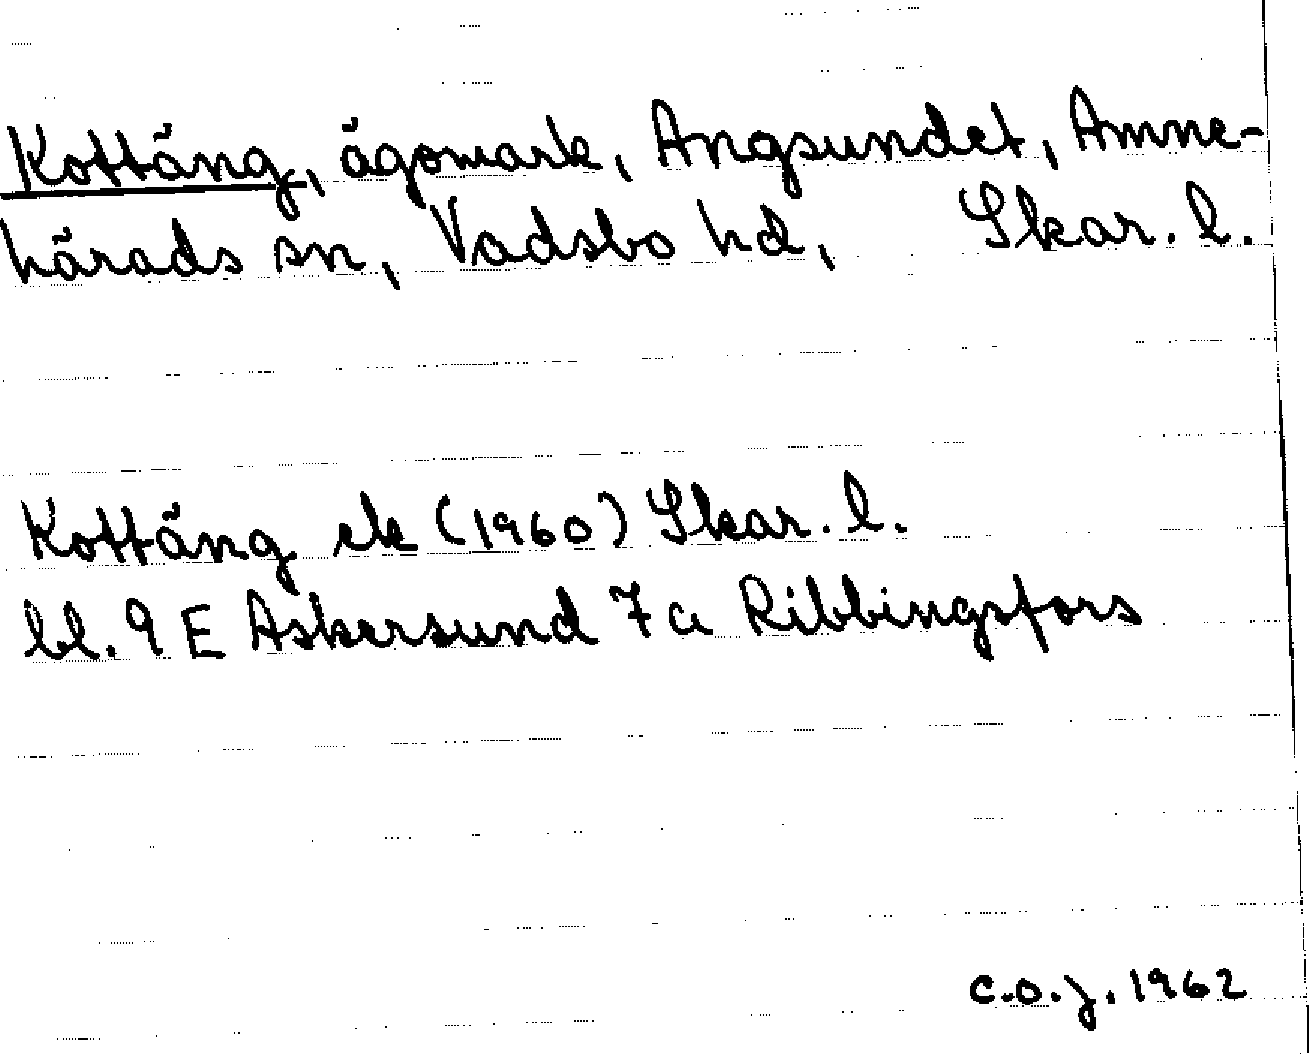 Kottäng, ägomark, Angsundet, Amne-
härads sn, Vadsbo hd, Skar. l.
Kottäng ek (1960) Skar. l.
bl. 9 E Askersund 7 a Ribbingsfors
C.O.J. 1962